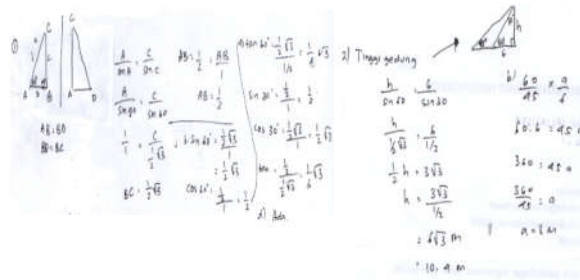 ①
C
A B
C
A D
AB = BD
BD = BC
A/sin A = C/sin C
A/sin 90 = C/sin 60
1/1 = C/½√3
BC = ½√3
AB = ½ = AB/1
AB = ½
sin 60° = ½√3/1
= ½√3
cos 60° = ½/1 = ½
tan 60° = ½√3/1/2
sin 30° = ½/1 = ½
cos 30° = ½√3/1 = ½√3
tan
d) Ada
2) Tinggi gedung
h
6
h/sin 60 = 6/sin 60
h/½√3 = 6/1/2
½ h = 3√3
h = 3√3/1/2
= 6√3 m
= 10,4 m
b) 60/45 × a/6
60 . 6 = 45 a
360 = 45 a
360/45 = a
a = 8 m